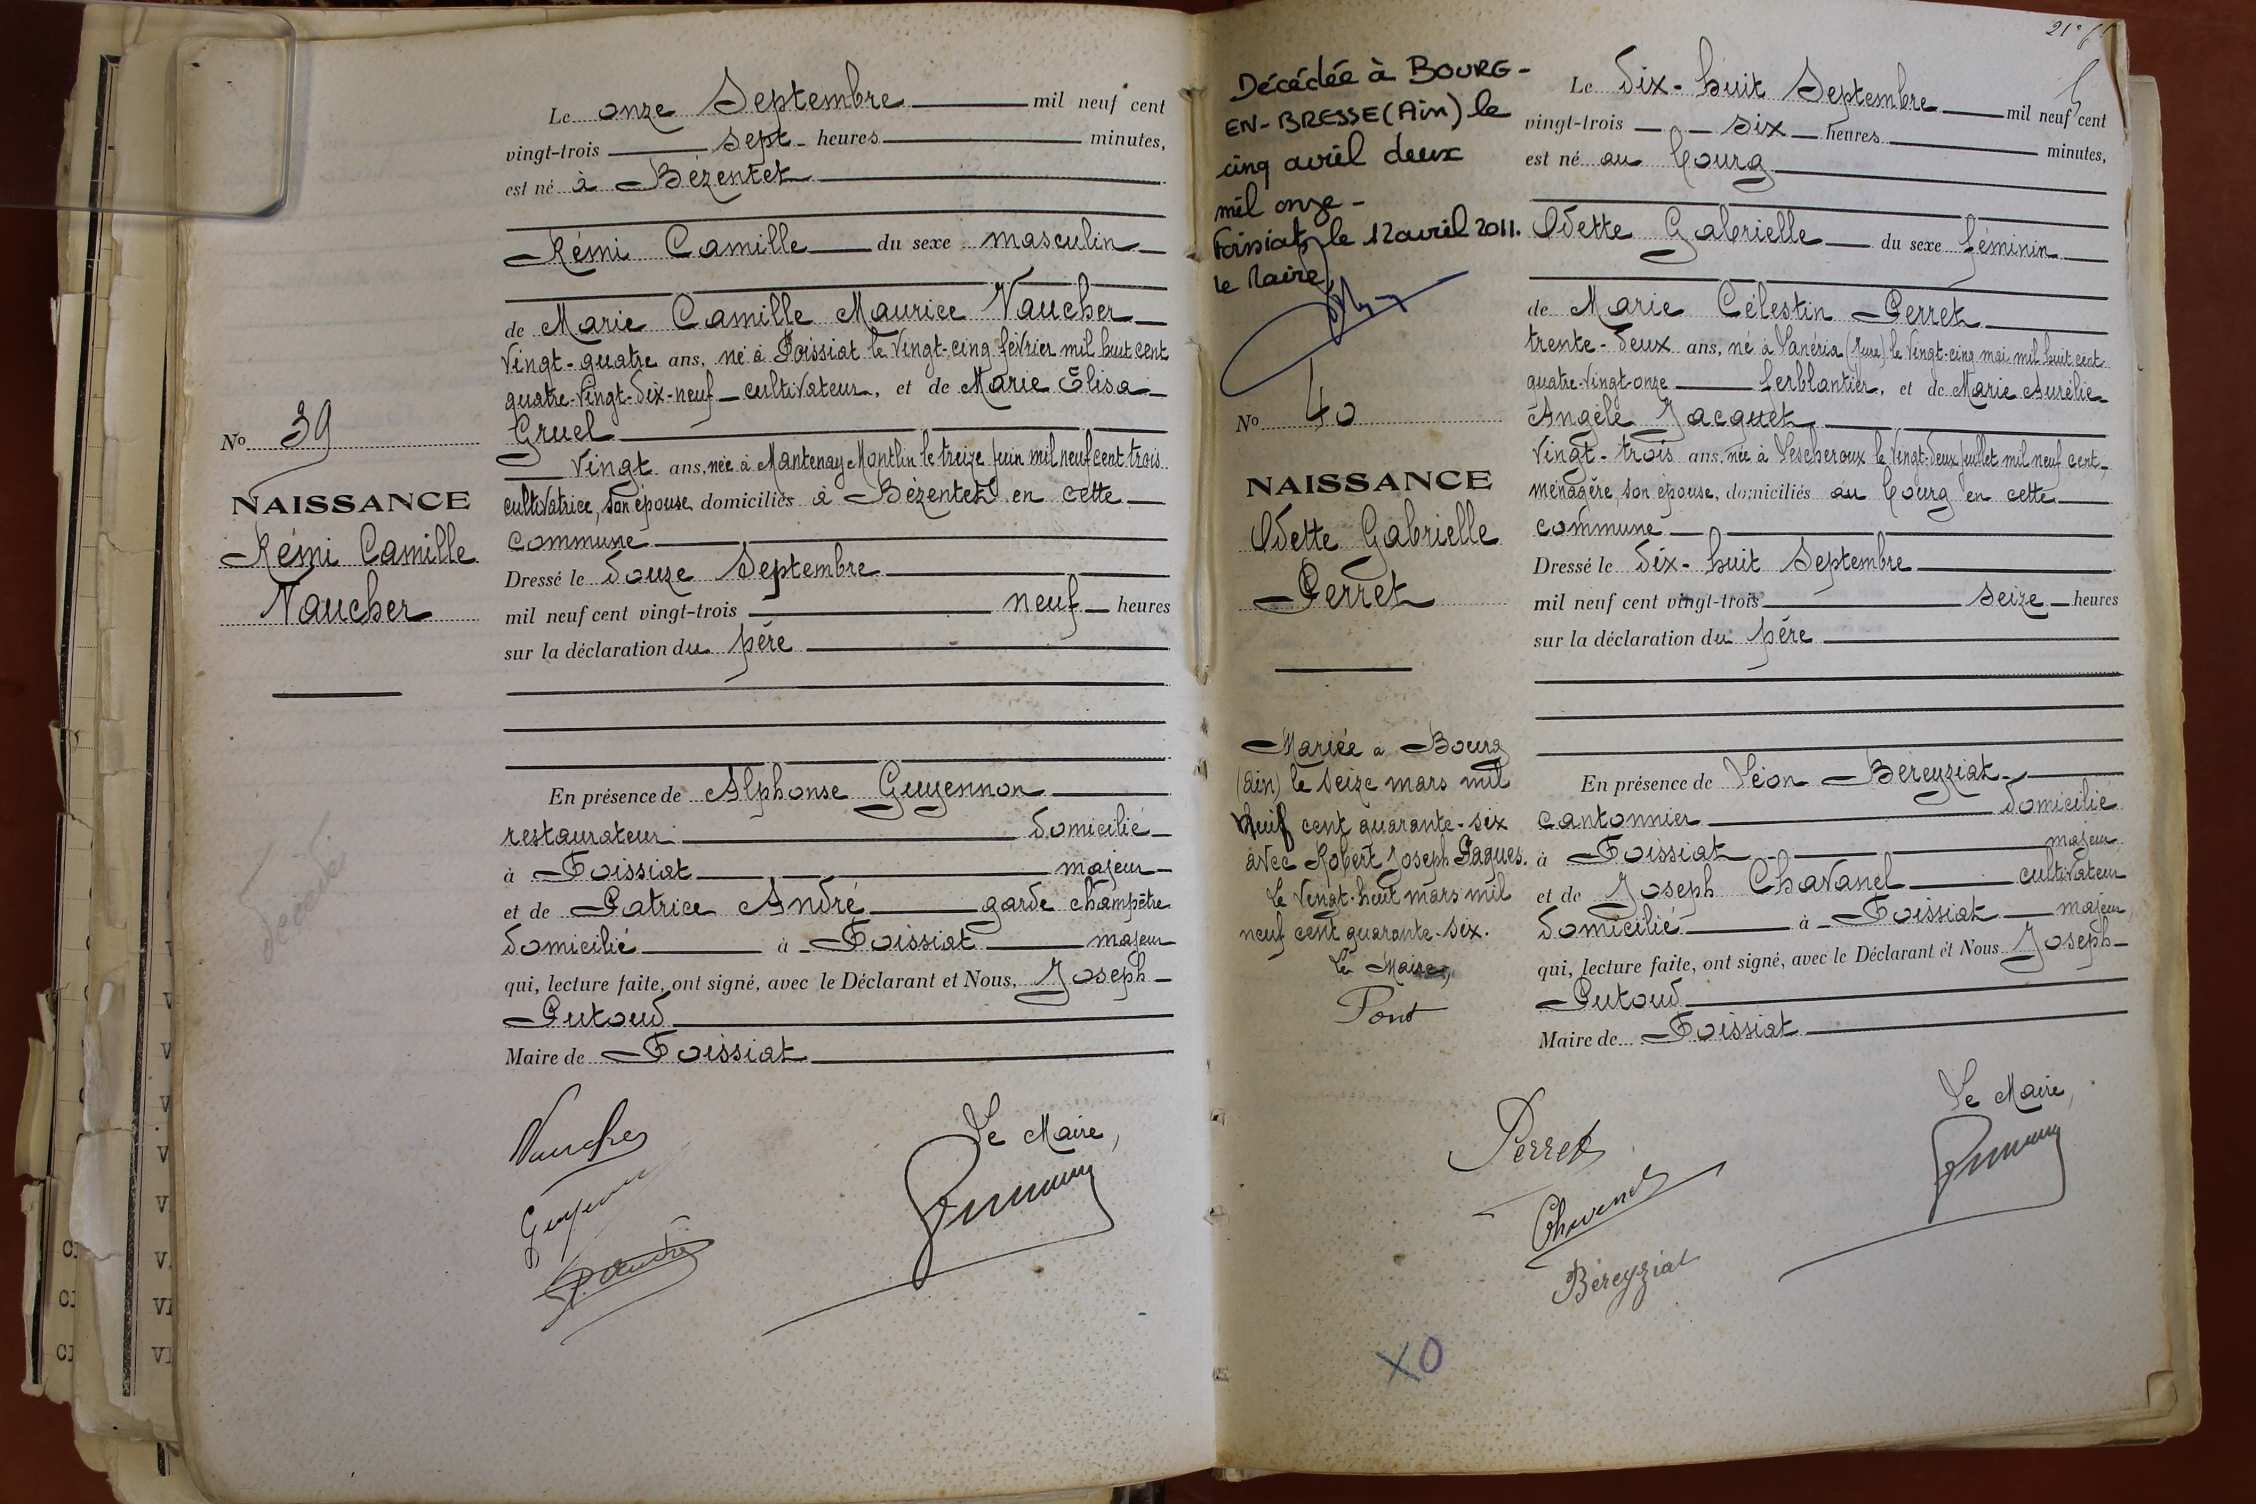 Le onze Septembre mil neuf cent
vingt-trois sept heures minutes,
est né à Bézentet
Rémi Camille du sexe masculin
de Marie Camille Maurice Vaucher
vingt-quatre ans, né à Foissiat le vingt-cinq février mil huit cent
quatre-vingt-dix-neuf cultivateur, et de Marie Élisa
Gruel
vingt ans, née à Mantenay Montlin le treize juin mil neuf cent trois
cultivatrice, son épouse domiciliés à Bézentet en cette
commune
Dressé le douze Septembre
mil neuf cent vingt-trois neuf heures
sur la déclaration du père
En présence de Alphonse Guyennon
restaurateur domicilié
à Foissiat majeur
et de Patrice André garde champêtre
domicilié à Foissiat majeur
qui, lecture faite, ont signé, avec le Déclarant et Nous, Joseph
Putoud
Maire de Foissiat
Le Maire,
Vaucher
P. André
No 39
NAISSANCE
Rémi Camille
Vaucher
décédé
Décédée à BOURG-
EN-BRESSE (Ain) le
cinq avril deux
mil onze -
Foissiat, le 12 avril 2011.
Le Maire,
No 40
NAISSANCE
Odette Gabrielle
Perret
Mariée à Bourg
(Ain) le seize mars mil
neuf cent quarante-six
avec Robert Joseph Pagues.
le vingt-huit mars mil
neuf cent quarante-six.
Le Maire,
Pont
Le dix-huit Septembre mil neuf cent
vingt-trois six heures minutes,
est né au bourg
Odette Gabrielle du sexe féminin
de Marie Célestin Perret
trente-deux ans, né à Vanéria (Jura) le vingt-cinq mai mil huit cent
quatre-vingt-onze ferblantier, et de Marie Aurélie
Angèle Jacquet
vingt-trois ans, née à Lescheroux le vingt-deux juillet mil neuf cent,
ménagère, son épouse, domiciliés au bourg en cette
commune
Dressé le dix-huit Septembre
mil neuf cent vingt-trois seize heures
sur la déclaration du père
En présence de Léon Béreyziat
cantonnier domicilié
à Foissiat majeur
et de Joseph Chavanel cultivateur
domicilié à Foissiat majeur,
qui, lecture faite, ont signé, avec le Déclarant et Nous Joseph
Putoud
Maire de Foissiat
Le Maire,
Perret
Chavanel
Béreyziat
XO